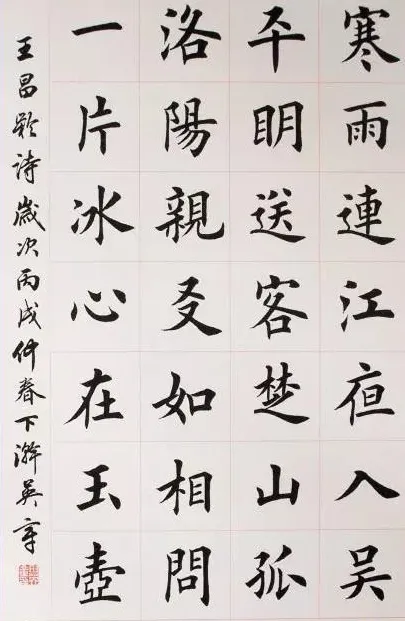 寒雨連江夜入吴
平眀送客楚山孤
洛陽親友如相問
一片冰心在玉壺
王昌齡詩歲次丙戌仲春下澣吴